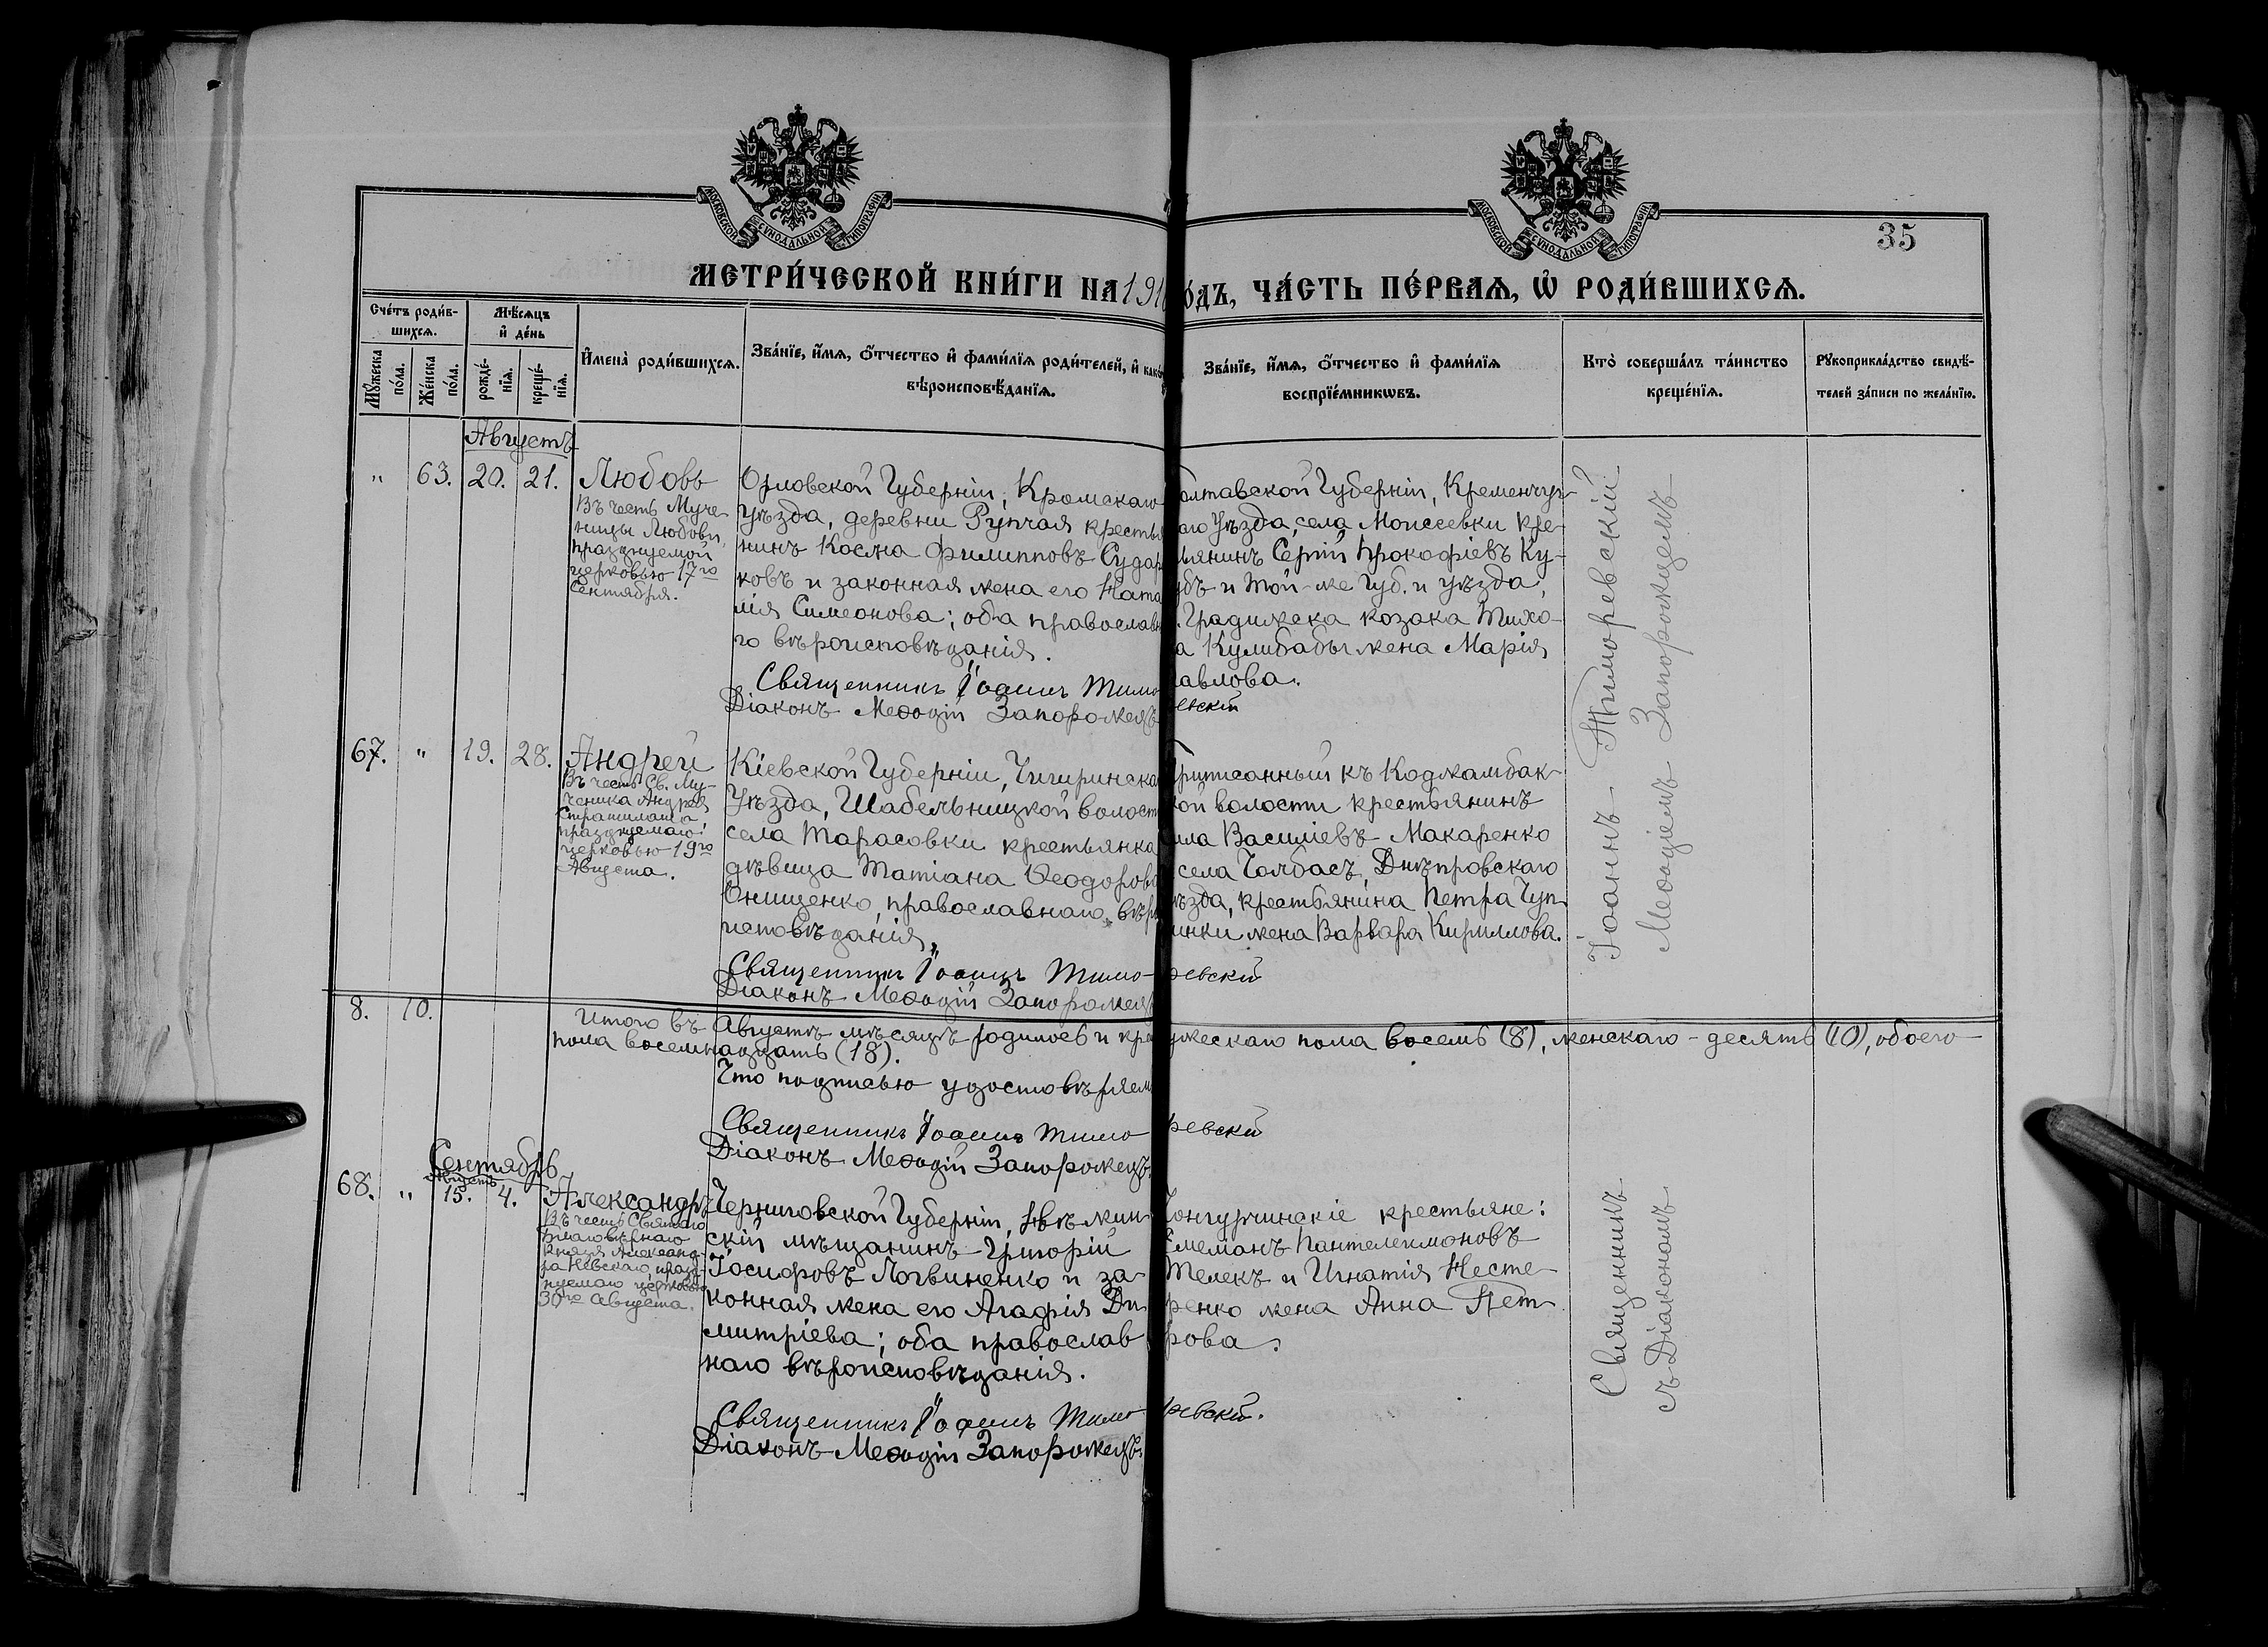 МОСКОВСКОЙ СУНОДАЛЬНОЙ ТИПОГРАФІИ
МОСКОВСКОЙ СУНОДАЛЬНОЙ ТИПОГРАФІИ
35
МЕТРИ́ЧЕСКОЙ КНИ́ГИ НА 191
О́ДЪ, ЧА́СТЬ ПЕ́РВАѦ, Ѽ РОДИ́ВШИХСѦ.
Сче́тъ роди́в-
шихсѧ.
Мѣ́сѧцъ
и҆ де́нь
Мꙋ́жеска
по́ла.
Же́нска
по́ла.
рожде́-
нїѧ.
креще́-
нїѧ.
И҆мена̀ роди́вшихсѧ.
Зва́нїе, и҆́мѧ, ѻ҆́тчество и҆ фами́лїѧ роди́телей, и҆ како
вѣроисповѣ́данїѧ.
Зва́нїе, и҆́мѧ, ѻ҆́тчество и҆ фами́лїѧ
воспрїе́мникѡвъ.
Кто̀ соверша́лъ та́инство
креще́нїѧ.
Рꙋкоприкла́дство свидѣ́-
телей за́писи по жела́нїю.
Августъ
" 63. 20. 21. Любовь
Въ честь Муче-
ницы Любови,
празднуемой
церковью 17го
Сентября.
Орловской Губерніи, Кромскаго
Уѣзда, деревни Рупчая крестья
нинъ Косма Филипповъ Судар
ковъ и законная жена его Ната
лія Симеонова; оба православн
го вѣроисповѣданія.
Священникъ Іоаннъ Тимо
Діаконъ Меѳодій Запорожецъ
олтавской Губерніи, Кременчуг-
аго Уѣзда, села Моисеевки кре-
ьянинъ Сергій Прокофіевъ Ку-
убъ и той-же Губ. и уѣзда,
. Градижска козака Тихо-
а Кулибабы жена Марія
авлова.
евскій
67. " 19. 28. Андрей
Въ честь Св. Му-
ченика Андрея
Стратилата,
празднуемаго
церковью 19го
Августа.
Кіевской Губерніи, Чигиринска
Уѣзда, Шабельницкой волост
села Тарасовки крестьянка
дѣвица Татіана Ѳеодорова
Онищенко, православнаго вѣро
исповѣданія.
Священникъ Іоаннъ Тимо-
Діаконъ Меѳодій Запорожецъ
риписанный къ Коджамбак-
ой волости крестьянинъ
ила Василіевъ Макаренко
села Чолбасъ, Днѣпровскаго
ѣзда, крестьянина Петра Чуп
инки жена Варвара Кириллова.
ревскій
Іоаннъ Тиморевскій
Меѳодіемъ Запорожцемъ
8. 10.
Итого въ Августѣ мѣсяцѣ родилось и кре
ужескаго пола восемь (8), женскаго - десять (10), обоего
пола восемнадцать (18).
Что подписью удостовѣряем
Священникъ Іоаннъ Тимо
ревскій
Діаконъ Меѳодій Запорожецъ
Сентябрь
Августъ
68. " 15. 4. Александръ
Въ честь Святаго
Благовѣрнаго
Князя Александ-
ра Невскаго, празд-
нуемаго церковью
30го Августа.
Черниговской Губерніи, Нѣжин-
скій мѣщанинъ Григорій
Іосифовъ Логвиненко и за-
конная жена его Агафія Ди
митріева; оба православ
наго вѣроисповѣданія.
Священникъ Іоаннъ Тимо
Діаконъ Меѳодій Запорожецъ
крестьяне:
Пантелеимоновъ
Телекъ и Игнатія Несте-
ренко жена Анна Пет
рова.
ревскій.
Священникъ
съ Діакономъ